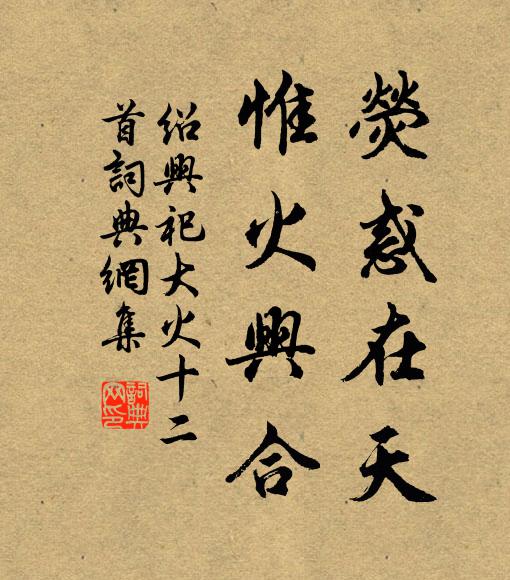 熒惑在天
惟火興合
紹興祀大火十二
首詞典網集
詞典
网印